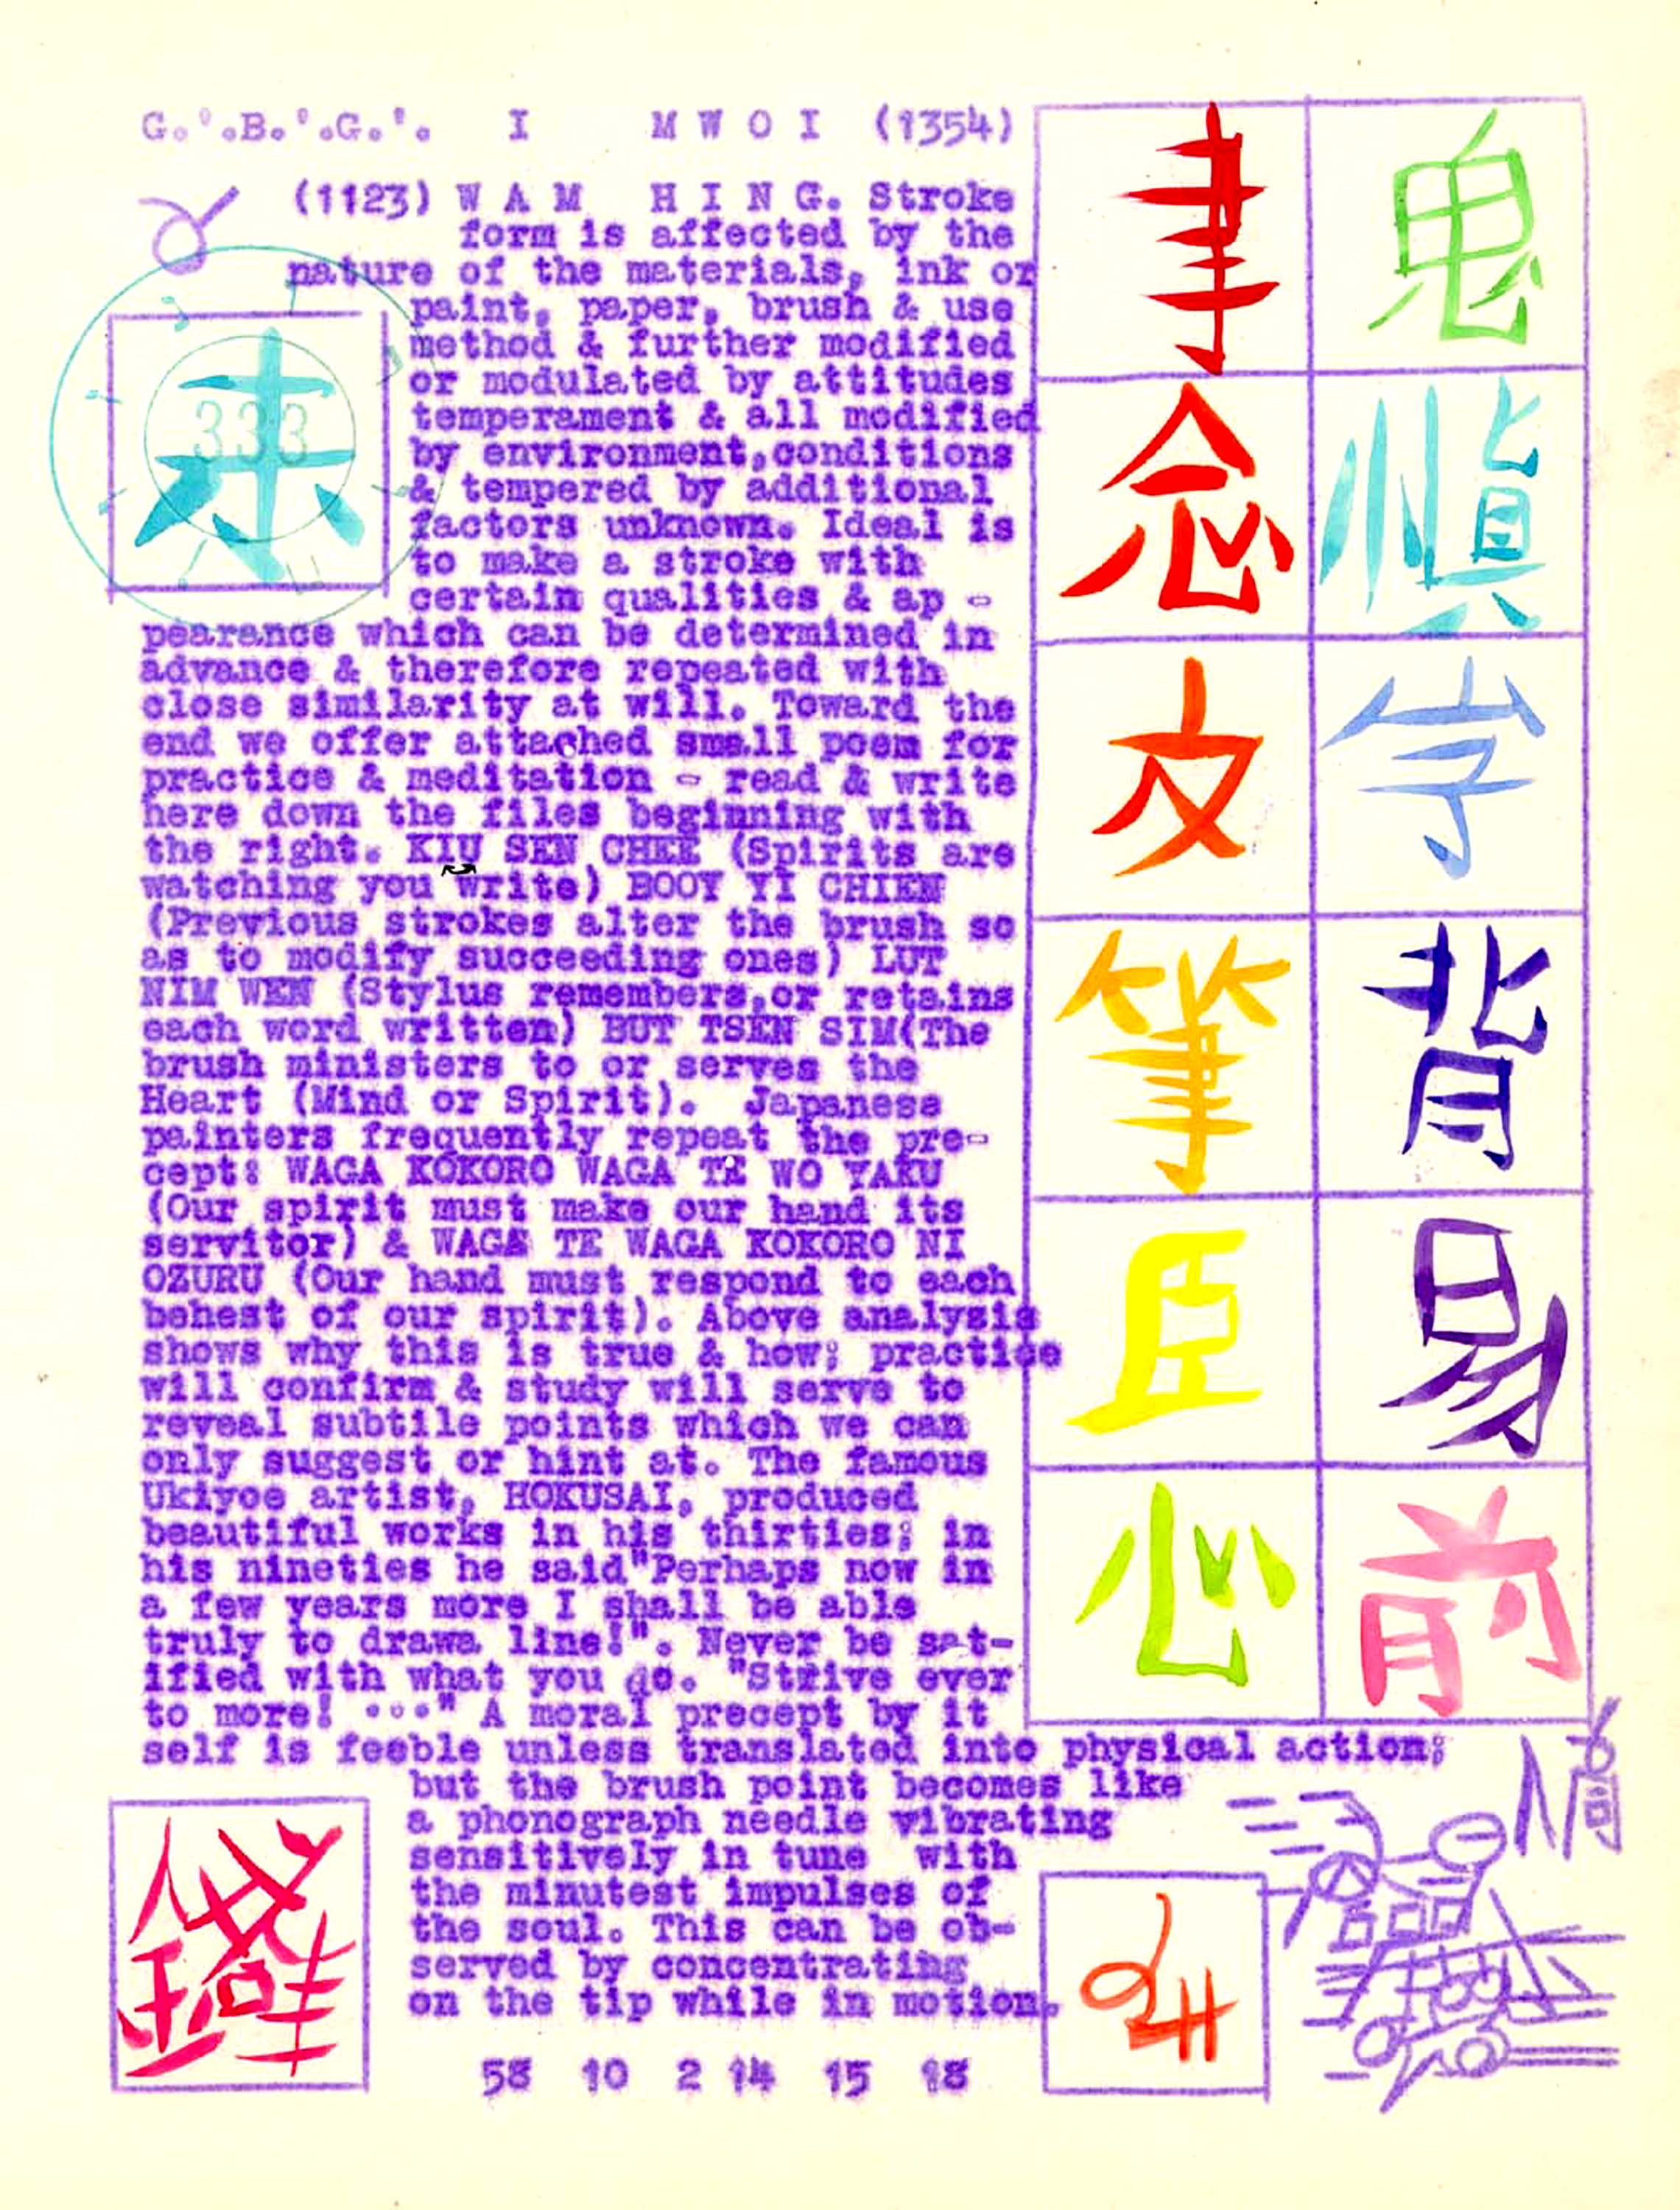 G.'.B.'.G.'. I M W O I (1354)
(1123) W A M H I N G. Stroke
form is affected by the
nature of the materials, ink or
paint, paper, brush & use
method & further modified
or modulated by attitudes
temperament & all modified
by environment,conditions
& tempered by additional
factors unknown. Ideal is
to make a stroke with
certain qualities & ap -
pearance which can be determined in
advance & therefore repeated with
close similarity at will. Toward the
end we offer attached small poem for
practice & meditation - read & write
here down the files beginning with
the right. KIU SEN CHEE (Spirits are
watching you write) BOOY YI CHIEN
(Previous strokes alter the brush so
as to modify succeeding ones) LUT
NIM WEN (Stylus remembers,or retains
each word written) BUT TSEN SIM(The
brush ministers to or serves the
Heart (Mind or Spirit). Japanese
painters frequently repeat the pre-
cept: WAGA KOKORO WAGA TE WO YAKU
(Our spirit must make our hand its
servitor) & WAGA TE WAGA KOKORO NI
OZURU (Our hand must respond to each
behest of our spirit). Above analysis
shows why this is true & how; practice
will confirm & study will serve to
reveal subtile points which we can
only suggest or hint at. The famous
Ukiyoe artist, HOKUSAI, produced
beautiful works in his thirties; in
his nineties he said"Perhaps now in
a few years more I shall be able
truly to drawa line!". Never be sat-
ified with what you do. "Strive ever
to more! ..." A moral precept by it
self is feeble unless translated into physical action;
but the brush point becomes like
a phonograph needle vibrating
sensitively in tune with
the minutest impulses of
the soul. This can be ob-
served by concentrating
on the tip while in motion.
58 10 2 14 15 18
333
鬼
慎
字
背
易
前
聿
念
文
筆
臣
心